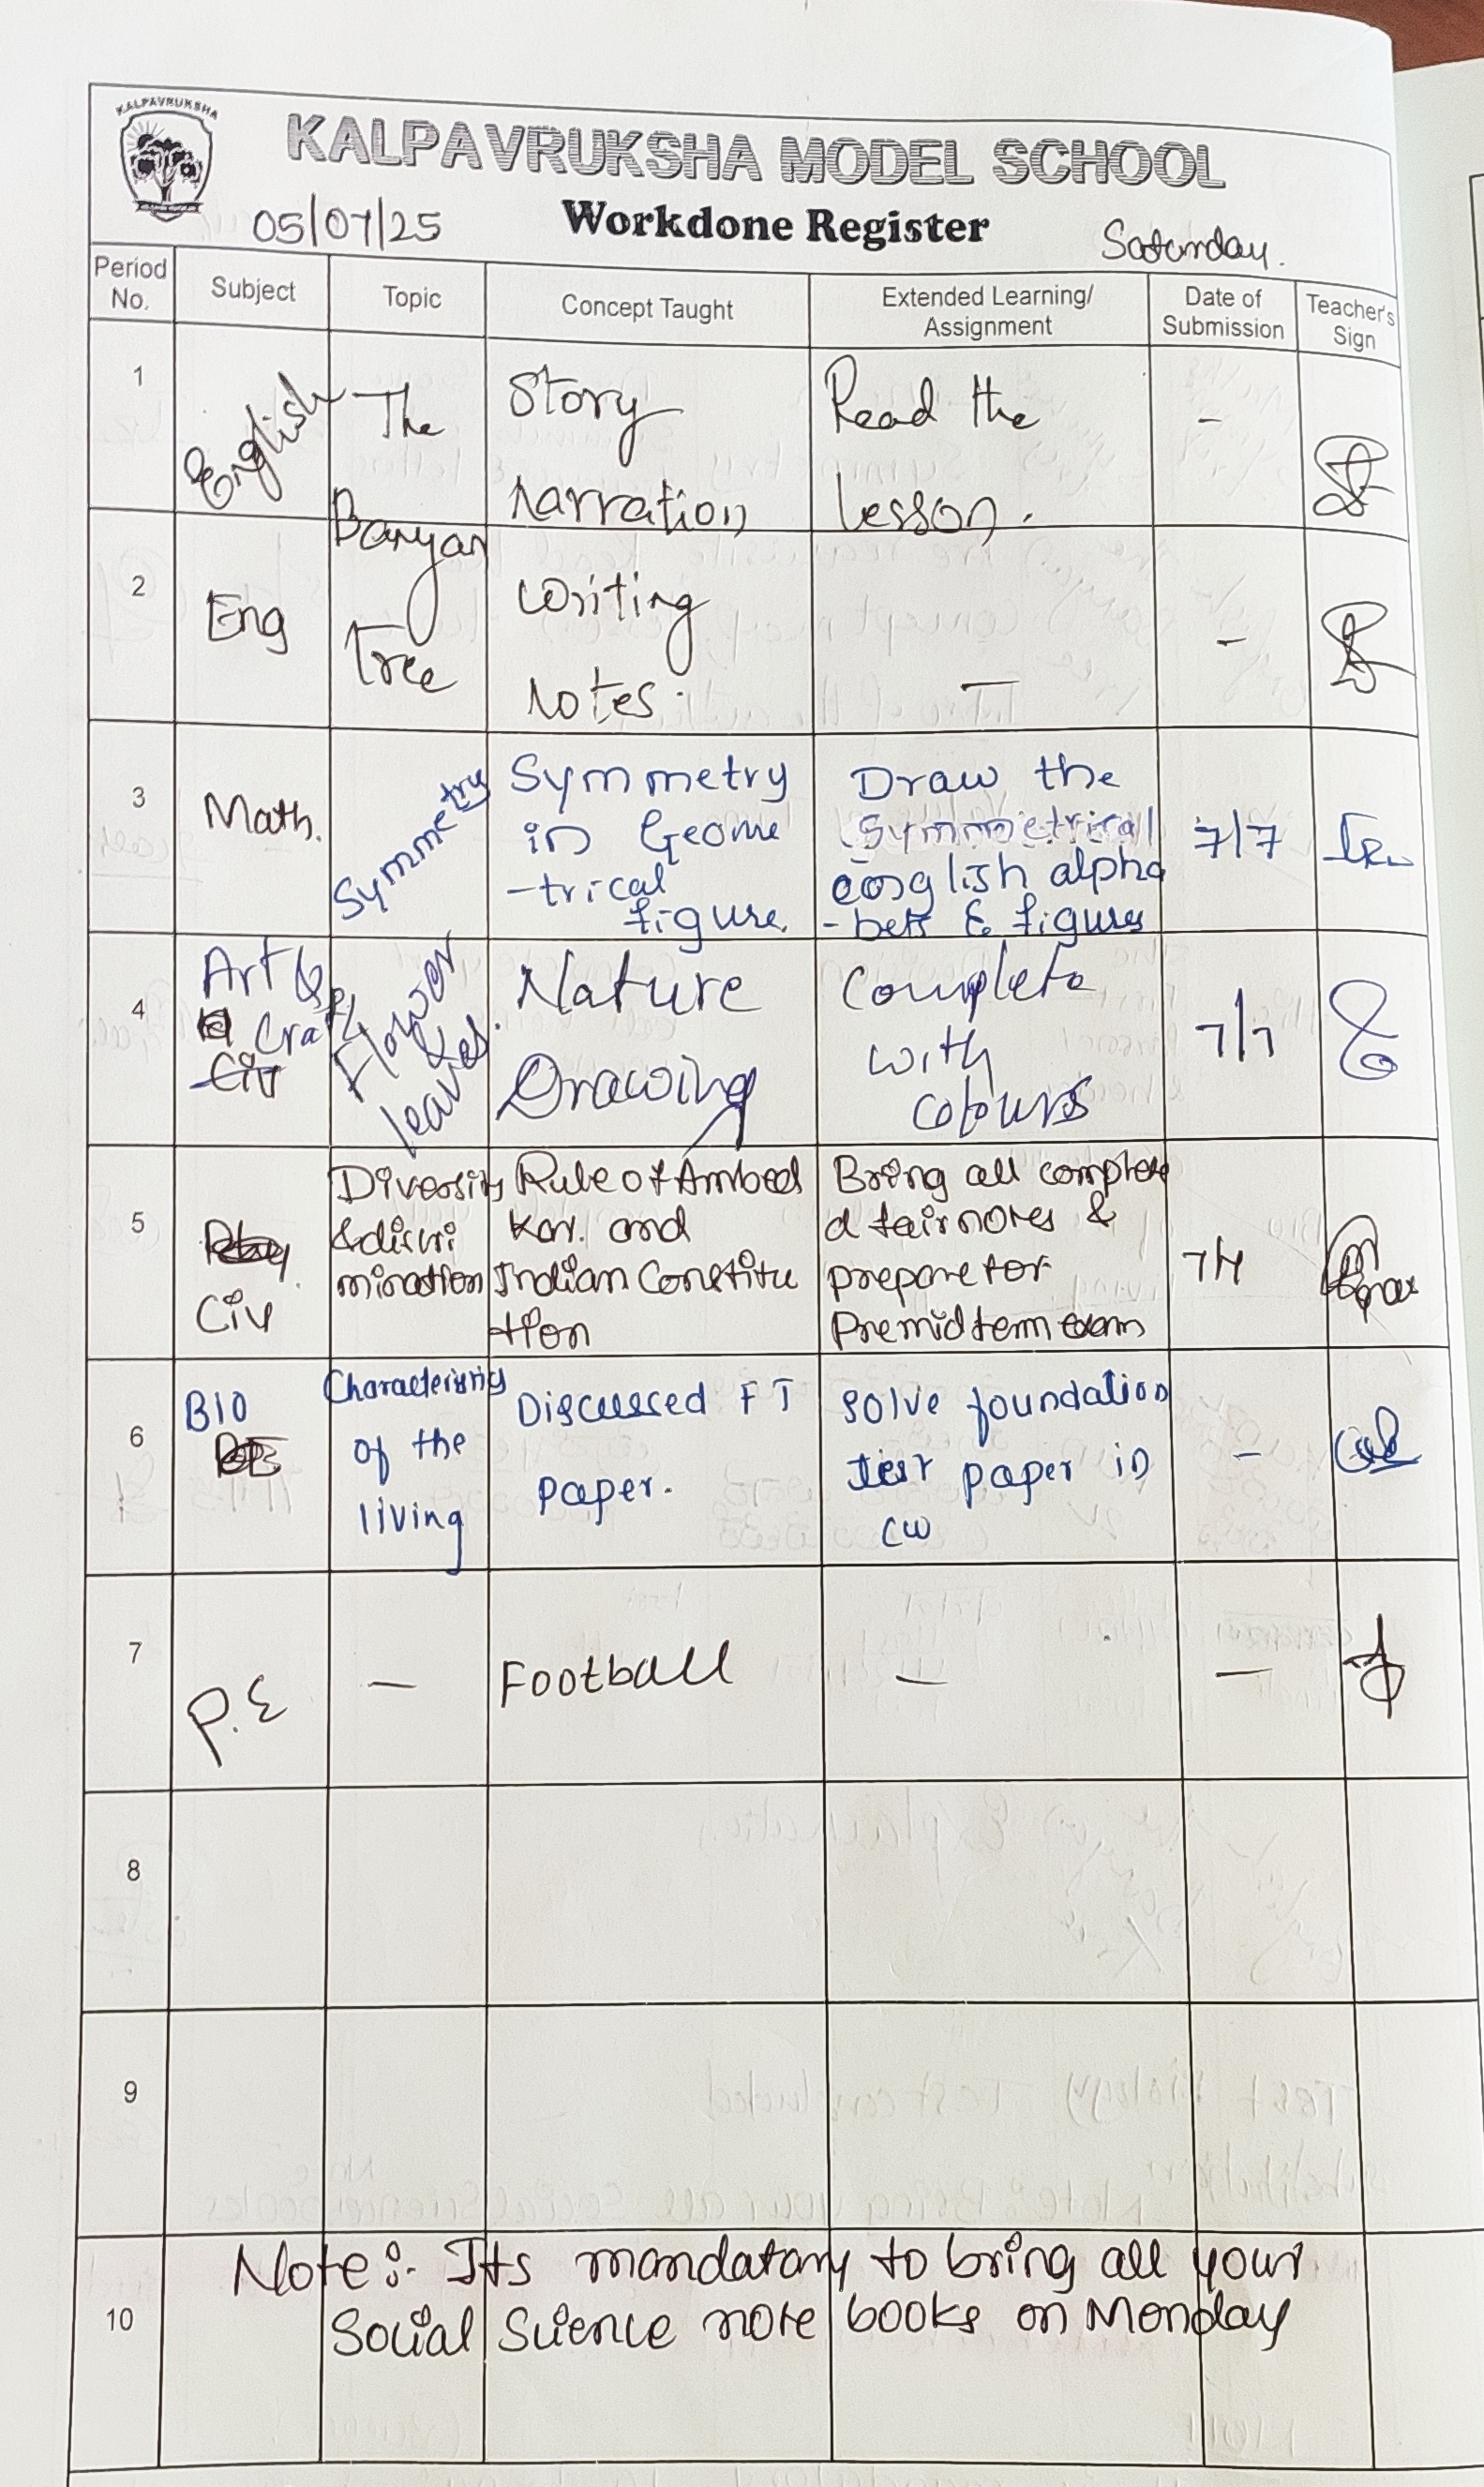 KALPAVRUKSHA
KALPAVRUKSHA MODEL SCHOOL
05/07/25 Workdone Register Saturday.
Period No. Subject Topic Concept Taught Extended Learning/ Assignment Date of Submission Teacher's Sign
1 English The Story Read the -
Banyan narration lesson.
2 Eng Tree Writing -
Notes. -
3 Math. Symmetry Symmetry Draw the
in Geome Symmetrical 7/7
-trical english alpha
figure. -bets & figures
4 Art & Craft Flower Nature Complete
Civ & leaves. Drawing with 7/7
colours
5 Civ Diversity Rule of Ambed Bring all complete
& discri kar. and d fair notes &
mination Indian Constitu prepare for 7/7
tion Premidterm exam
6 BIO Characteristics Discussed FT Solve foundation
of the paper. test paper in -
living cw
7 P.E - Football - -
8
9
10 Note:- Its mandatory to bring all your
Social Science note books on Monday